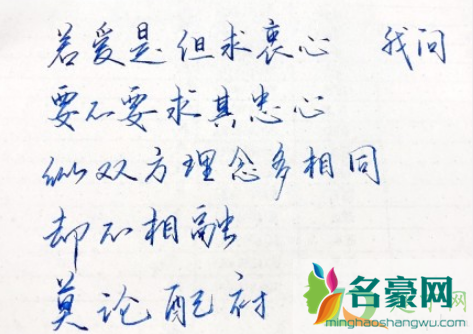 若爱是但求衷心 我问
要不要求其忠心
纵双方理念多相同
却不相融
莫论配衬
名豪网
mingrihaoshangwu.com